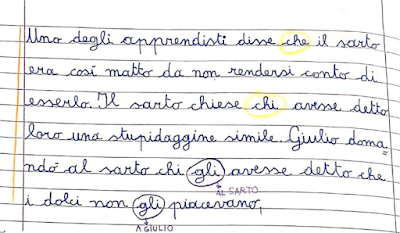 Uno degli apprendisti disse che il sarto
era così matto da non rendersi conto di
esserlo. Il sarto chiese chi avesse detto
loro una stupidaggine simile. Giulio doma=
ndò al sarto chi gli avesse detto che
AL SARTO
i dolci non gli piacevano,
A GIULIO